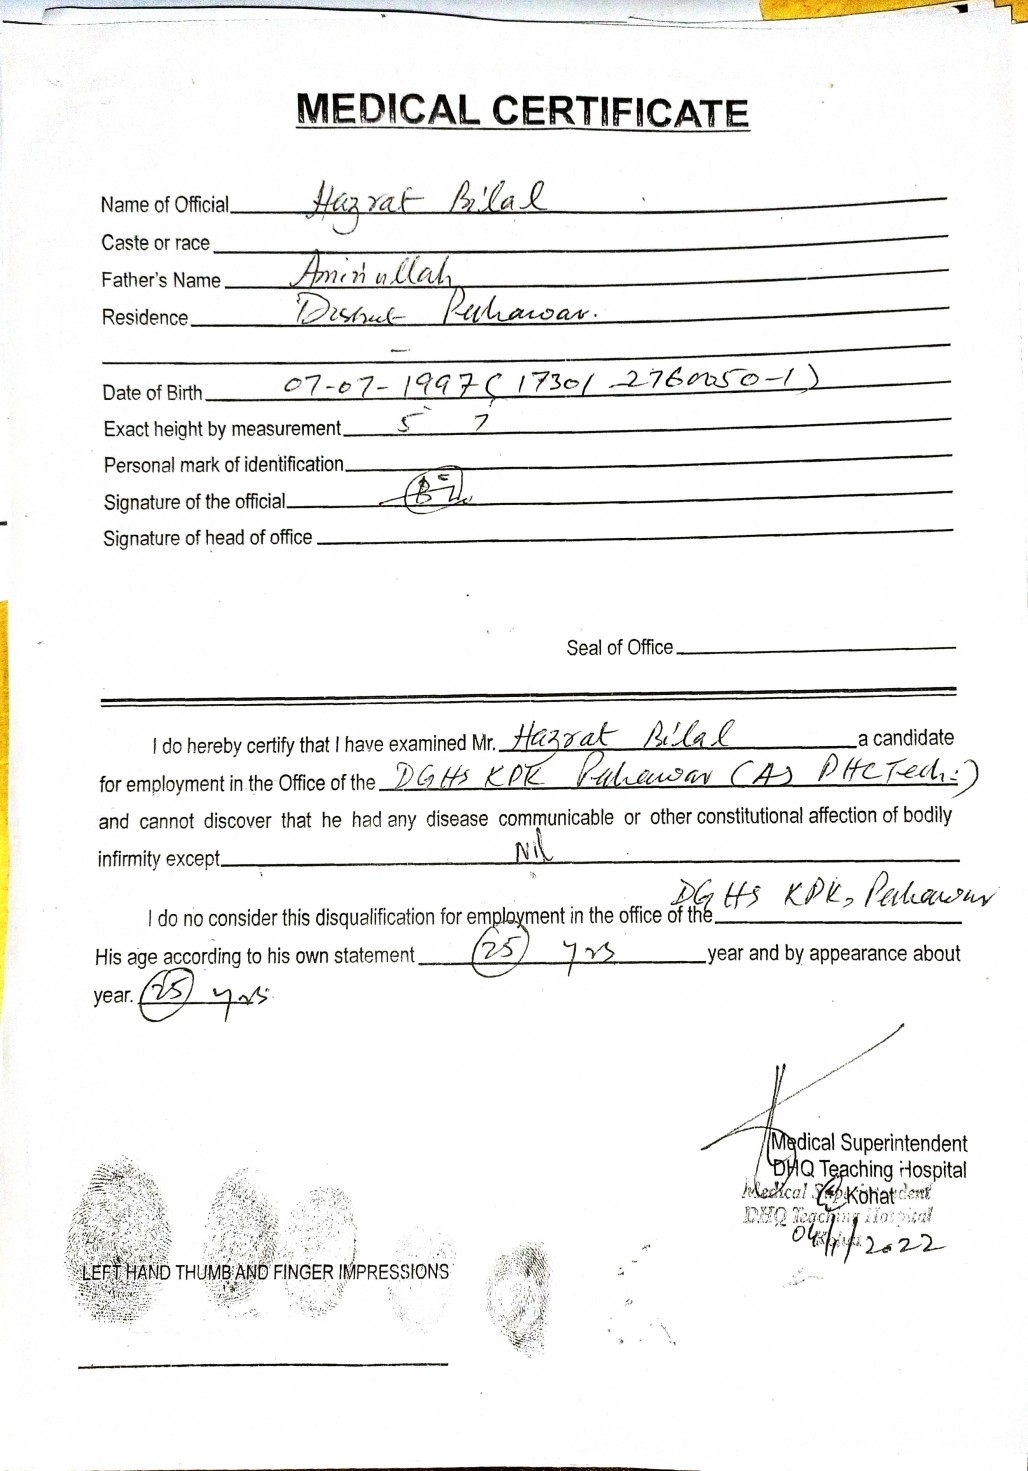 MEDICAL CERTIFICATE
Name of Official Hazrat Bilal
Caste or race
Father's Name Aminullah
Residence District Peshawar.
Date of Birth 07-07-1997 (17301-2760050-1)
Exact height by measurement 5' 7
Personal mark of identification
Signature of the official
Signature of head of office
Seal of Office
I do hereby certify that I have examined Mr. Hazrat Bilal a candidate
for employment in the Office of the DGHS KPK Peshawar (As PHC Tech:)
and cannot discover that he had any disease communicable or other constitutional affection of bodily
infirmity except Nil
DGHS KPK, Peshawar
I do no consider this disqualification for employment in the office of the
His age according to his own statement 25 yrs year and by appearance about
year. 25 yrs
Medical Superintendent
DHQ Teaching Hospital
Kohat
Medical Superintendent
DHQ Teaching Hospital
Kohat
04/1/2022
LEFT HAND THUMB AND FINGER IMPRESSIONS